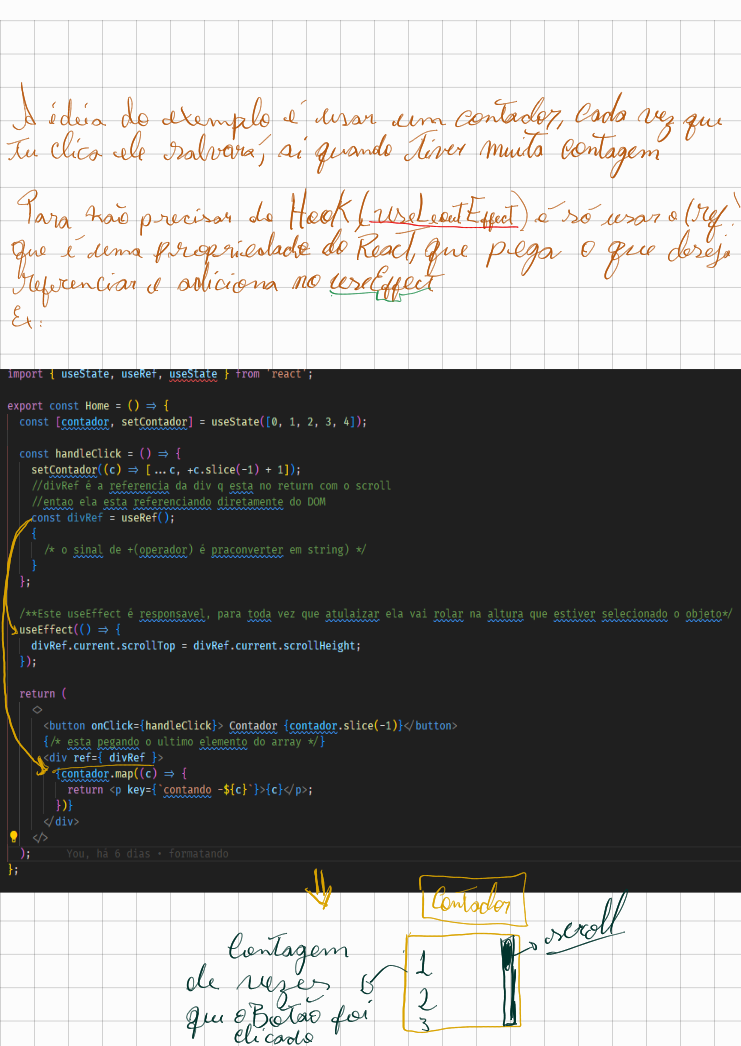 A idéia do exemplo é usar um contador, cada vez que
tu clica ele salvará, ai quando tiver muita contagem
Para não precisar do Hook (useLeoutEffect) é só usar o (ref..
que é uma propriedade do React, que pega o que deseja
referenciar e adiciona no useEffect
Ex:
import { useState, useRef, useState } from 'react';
export const Home = () ⇒ {
const [contador, setContador] = useState([0, 1, 2, 3, 4]);
const handleClick = () ⇒ {
setContador((c) ⇒ [...c, +c.slice(-1) + 1]);
//divRef é a referencia da div q esta no return com o scroll
//entao ela esta referenciando diretamente do DOM
const divRef = useRef();
{
/* o sinal de +(operador) é praconverter em string) */
}
};
/**Este useEffect é responsavel, para toda vez que atulaizar ela vai rolar na altura que estiver selecionado o objeto*/
useEffect(() ⇒ {
divRef.current.scrollTop = divRef.current.scrollHeight;
});
return (
<>
<button onClick={handleClick}> Contador {contador.slice(-1)}</button>
{/* esta pegando o ultimo elemento do array */}
<div ref={ divRef }>
{contador.map((c) ⇒ {
return <p key={`contando -${c}`}>{c}</p>;
})}
</div>
</>
); You, há 6 dias • formatando
};
Contador
scroll
Contagem
de vezes
que o Botão foi
clicado
1
2
3